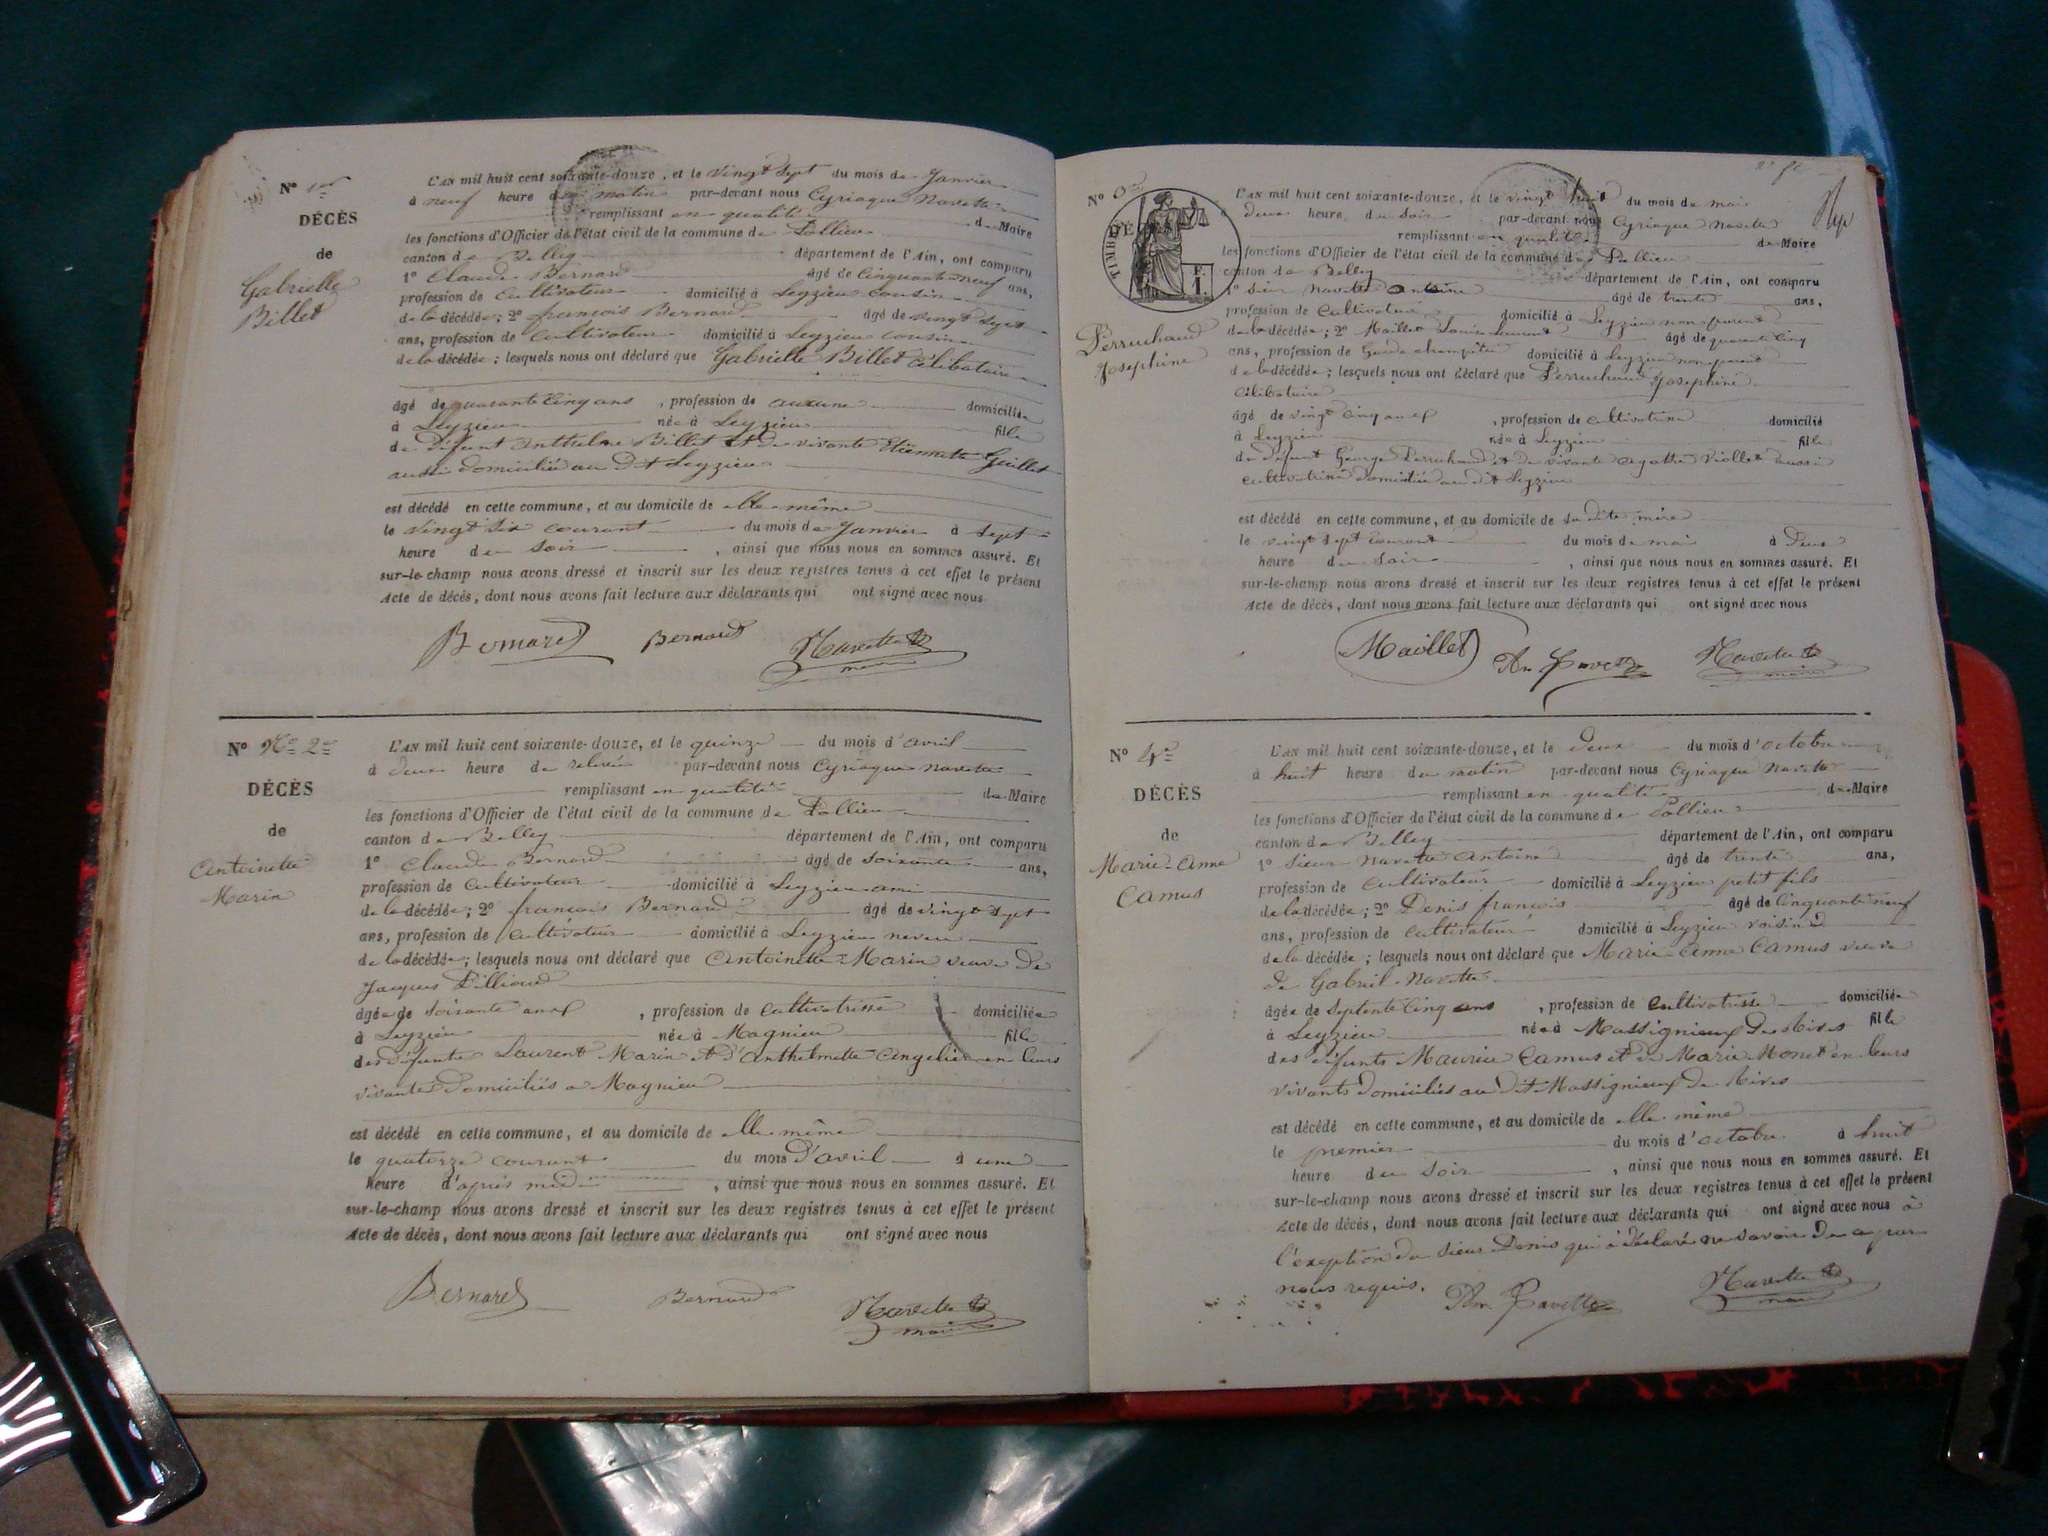 N° 1er
DÉCÈS
de
Gabrielle
Billet
L'AN mil huit cent soixante-douze, et le vingt sept du mois de Janvier
à neuf heure du matin par-devant nous Cyriaque Navette
remplissant en qualité de Maire
les fonctions d'Officier de l'état civil de la commune de Pollieu
canton de Belley département de l'Ain, ont comparu
1° Claude Bernard âgé de Cinquante neuf ans,
profession de Cultivateur domicilié à Leyzieu cousin
de la décédée; 2° françois Bernard âgé de vingt sept
ans, profession de Cultivateur domicilié à Leyzieu cousin
de la décédée; lesquels nous ont déclaré que Gabrielle Billet célibataire
âgé de quarante Cinq ans, profession de aucune domiciliée
à Leyzieu née à Leyzieu fille
de défunt Anthelme Billet et de vivante Etiennette Guillet
aussi domiciliée au dit Leyzieu
est décédé en cette commune, et au domicile de elle même
le vingt six courant du mois de Janvier à sept
heure du soir, ainsi que nous nous en sommes assuré. Et
sur-le-champ nous avons dressé et inscrit sur les deux registres tenus à cet effet le présent
Acte de décès, dont nous avons fait lecture aux déclarants qui ont signé avec nous
Bernard Bernard Navette
maire
N° No 2me
DÉCÈS
de
Antoinette
Marin
L'AN mil huit cent soixante-douze, et le quinze du mois d'avril
à deux heure de relevée par-devant nous Cyriaque Navette
remplissant en qualité de Maire
les fonctions d'Officier de l'état civil de la commune de Pollieu
canton de Belley département de l'Ain, ont comparu
1° Claude Bernard âgé de soixante ans,
profession de Cultivateur domicilié à Leyzieu ami
de la décédée; 2° françois Bernard âgé de vingt sept
ans, profession de Cultivateur domicilié à Leyzieu neveu
de la décédée; lesquels nous ont déclaré que Antoinette Marin veuve de
Jacques Pillioud
âgée de soixante ans, profession de Cultivatrisse domiciliée
à Leyzieu née à Magnieu fille
des défunts Laurent Marin et d'Anthelmette Angelier en leurs
vivants domiciliés à Magnieu
est décédé en cette commune, et au domicile de elle même
le quatorze courant du mois D'avril à une
heure d'après midi, ainsi que nous nous en sommes assuré. Et
sur-le-champ nous avons dressé et inscrit sur les deux registres tenus à cet effet le présent
Acte de décès, dont nous avons fait lecture aux déclarants qui ont signé avec nous
Bernard Bernard Navette
maire
2e ft
N° 3me
TIMBRE DE
F.
1.
Perruchaud
Josephine
L'AN mil huit cent soixante-douze, et le vingt huit du mois de mai
deux heure du soir par-devant nous Cyriaque Navette
remplissant en qualité de Maire
les fonctions d'Officier de l'état civil de la commune de Pollieu
canton de Belley département de l'Ain, ont comparu
1° Sieur Navette Antoine âgé de trente ans,
profession de Cultivateur domicilié à Leyzieu non parent
de la décédée; 2° Maillet Louis Laurent âgé de quarante Cinq
ans, profession de Garde champêtre domicilié à Leyzieu non parent
de la décédée; lesquels nous ont déclaré que Perruchaud Josephine
Célibataire
âgé de vingt Cinq ans, profession de Cultivatrice domicilié
à Leyzieu née à Leyzieu fille
de défunt George Perruchaud et de vivante Agathe Viollet aussi
Cultivatrice domiciliée au dit Leyzieu
est décédé en cette commune, et au domicile de sa dite mère
le vingt sept courant du mois de mai à Deux
heure du soir, ainsi que nous nous en sommes assuré. Et
sur-le-champ nous avons dressé et inscrit sur les deux registres tenus à cet effet le présent
Acte de décès, dont nous avons fait lecture aux déclarants qui ont signé avec nous
Maillet An Navette Navette
maire
N° 4me
DÉCÈS
de
Marie-Anne
Camus
L'AN mil huit cent soixante-douze, et le deux du mois d'octobre
à huit heure du matin par-devant nous Cyriaque Navette
remplissant en qualité de Maire
les fonctions d'Officier de l'état civil de la commune de Pollieu
canton de Belley département de l'Ain, ont comparu
1° Sieur Navette Antoine âgé de trente ans,
profession de Cultivateur domicilié à Leyzieu petit fils
de la décédée; 2° Denis françois âgé de Cinquante neuf
ans, profession de Cultivateur domicilié à Leyzieu voisin
de la décédée; lesquels nous ont déclaré que Marie Anne Camus veuve
de Gabriel Navette
âgée de Septente Cinq ans, profession de Cultivatrisse domiciliée
à Leyzieu née à Massignieux de Rives fille
des défunts Maurice Camus et de Marie Monet en leurs
vivants domiciliés au dit Massignieux de Rives
est décédé en cette commune, et au domicile de elle même
le premier du mois d'octobre à huit
heure du soir, ainsi que nous nous en sommes assuré. Et
sur-le-champ nous avons dressé et inscrit sur les deux registres tenus à cet effet le présent
Acte de décès, dont nous avons fait lecture aux déclarants qui ont signé avec nous à
l'exeption du Sieur Denis qui à déclaré ne savoir de ce par
nous requis. An. Navette Navette
maire